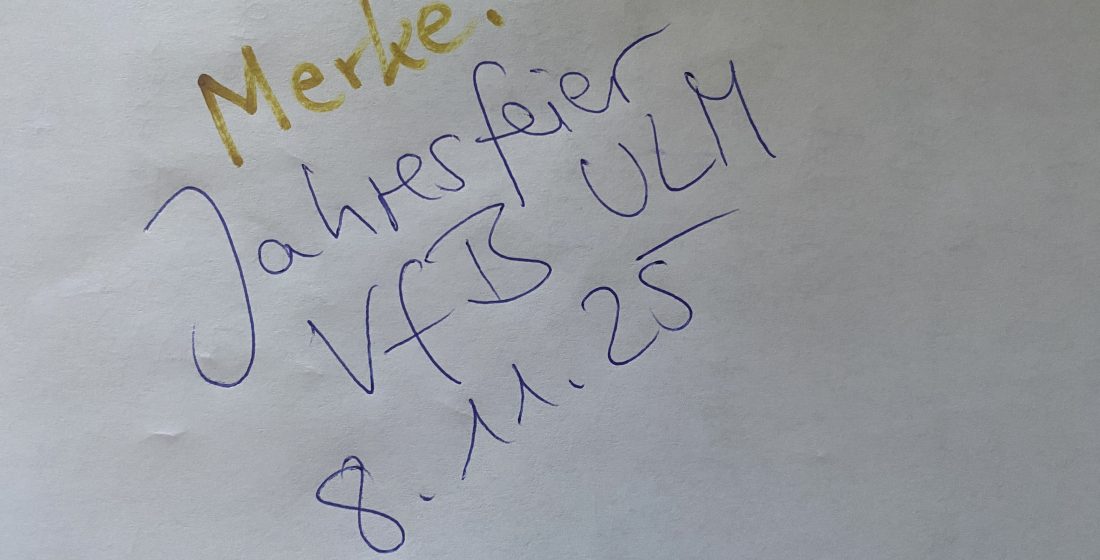 Merke.
Jahresfeier
VfB ULM
8.11.25